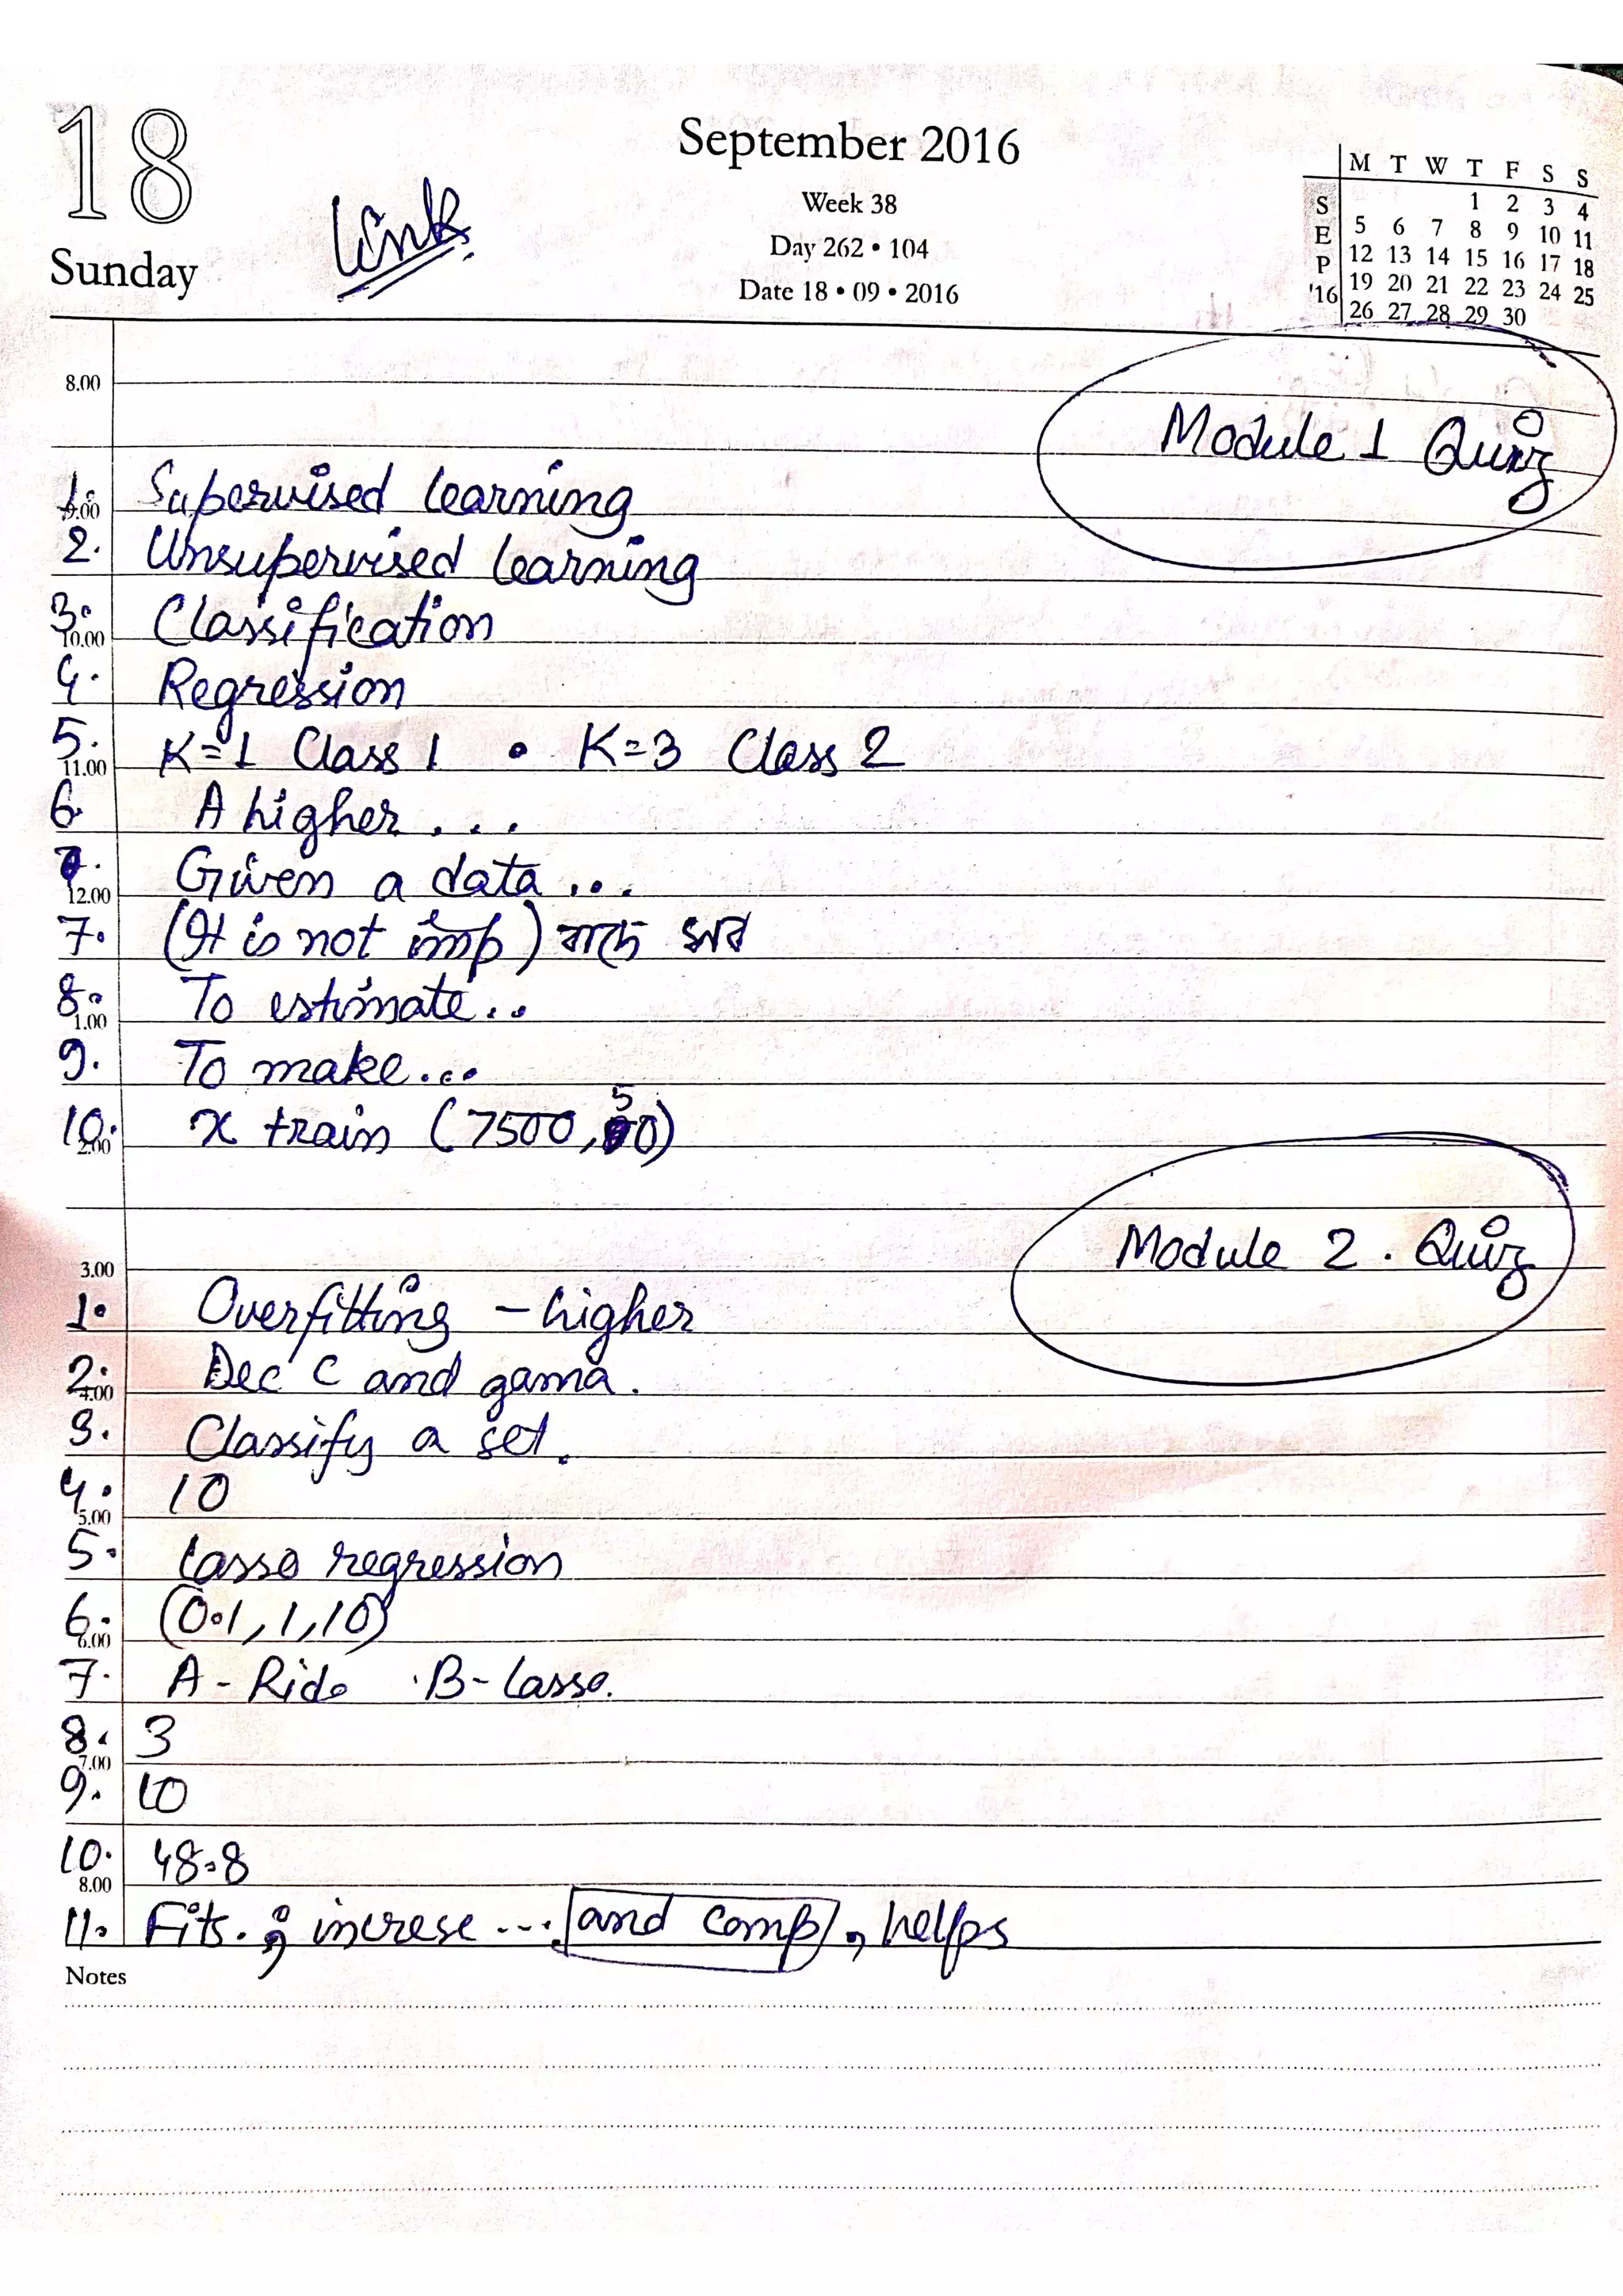 18
Sunday
Link
September 2016
Week 38
Day 262 • 104
Date 18 • 09 • 2016
M T W T F S S
S 1 2 3 4
E 5 6 7 8 9 10 11
P 12 13 14 15 16 17 18
'16 19 20 21 22 23 24 25
26 27 28 29 30
8.00
Module 1 Quiz
1. Supervised learning
9.00
2. Unsupervised learning
3. Classification
10.00
4. Regression
5. K=1 Class 1 • K=3 Class 2
11.00
6. A higher ...
Given a data ...
12.00
7. (It is not imp) বাদে সব
8. To estimate..
1.00
9. To make...
10. x train (7500, 50)
2.00
Module 2 . Quiz
3.00
1. Overfitting - higher
2. Dec C and gama.
4.00
3. Classify a set.
4. 10
5.00
5. Lasso regression
6. (0.1, 1, 10)
6.00
7. A - Ride . B - Lasso.
8. 3
7.00
9. 10
10. 48.8
8.00
11. Fits. ; increse ... and comp, helps
Notes